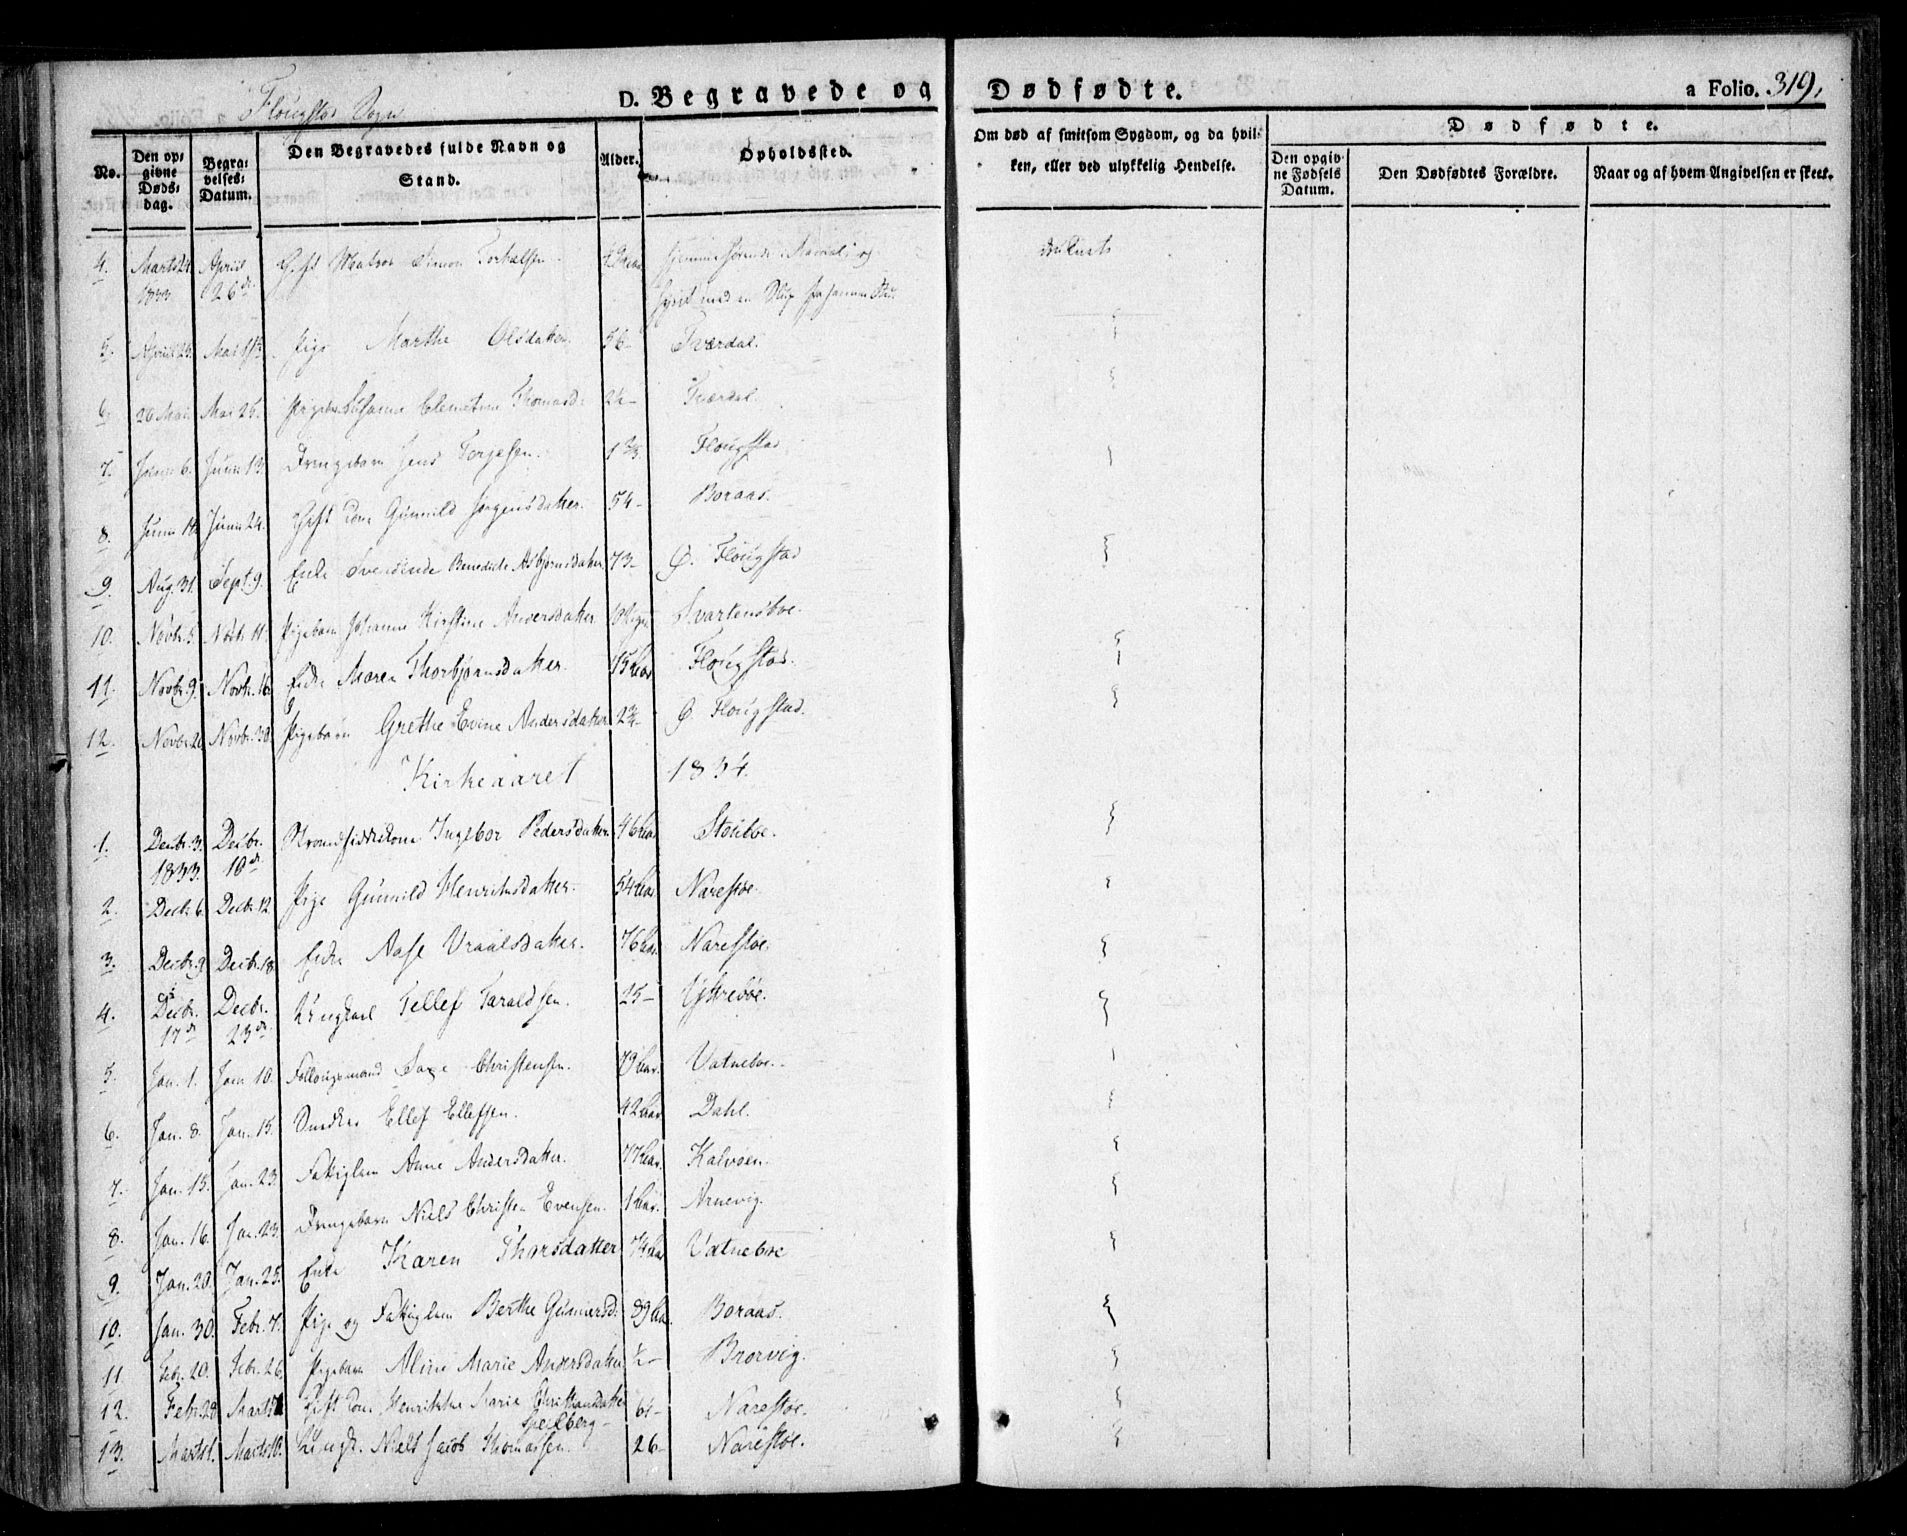 Flougstad Sogn
D. Begravede og Dødfødte. a Folio. 319.
No. Den opgivne Døds-dag. Begravelses-Datum. Den Begravedes fulde Navn og Stand. Alder. Opholdssted. Om død af smitsom Sygdom, og da hvilken, eller ved ulykkelig Hendelse. Dødfødte. Den opgivne Fødsels Datum. Den Dødfødtes Forældre. Naar og af hvem Angivelsen er skeet.
4. Marts 24. 1833 April 26de Gift Matros Simon Torkelsen druknet
5. April 26. Mai Pige Marthe Olsdatter 56 - Tværdal.
6. 26 Mai Mai 25. Pigebarn Susanne Thomasd. Tværdal.
7. Juni 6. Juni 13. Drengebarn Jens Terjesen. Flougstad
8. Juni 14. Juni 24. Gift Kone Gunnild Jørgensdatter. 54 - Boraas.
9. Aug. 31. Sept. 9. Enke Benedicte Asbjørnsdatter 73 - Ø. Flougstad
10. Novbr. 5. Novbr. 11. Pigebarn Johanne Kirstine Andersdatter Svartensboe.
11. Novbr. 9. Novbr. 16. Enke Maren Thorbjørnsdatter. Flougstad.
12. Novbr. 20 Novbr. 30. Pigebarn Grethe Evine Andersdatter 2¾ - Ø. Flougstad.
Kirkeaaret 1834.
1. Decbr. 3. 1833. Decbr. 10de Ingebor Pedersdatter 46 Aar
2. Decbr. 6. Decbr. 12. Pige Gunnild Henriksdatter. 54 Aar Narestøe.
3. Decbr. 9. Decbr. 18. Enke Aase Vraalsdatter. 76 Aar. Narestøe.
4. Decbr. 17de Decbr. 23de Ungkarl Tellef Taraldsen. 25 - Yttrebøe.
5. Jan. 1. Jan. 10. Follougsmand Saxe Christensen. 79 Aar. Vatneboe.
6. Jan. 8. Jan. 15. Ellef Ellefsen. 42 Aar. Dahl.
7. Jan. 15. Jan. 23. Fattiglem Anne Andersdatter. 77 Aar. Kalvøen.
8. Jan. 16. Jan. 23. Drengebarn Niels Christen Evensen. 1 Aar. Arnevig.
9. Jan. 20. Jan. 25. Enke Karen Thorsdatter 74 Aar Vatneboe
10. Jan. 30. Febr. 7. Pige og Fattiglem Berthe Gunnersd. 89 Aar. Boraas.
11. Febr. 20. Febr. 26. Pigebarn Aline Marie Andersdatter ½ - Brorvig.
12. Febr. 28 Marts Gift Kone Henrikke Marie Christiansdatter 61 - Narestøe.
Speilberg -
13. Marts Marts Ungk. Niels Jacob Thomassen. 26 - Narestøe.